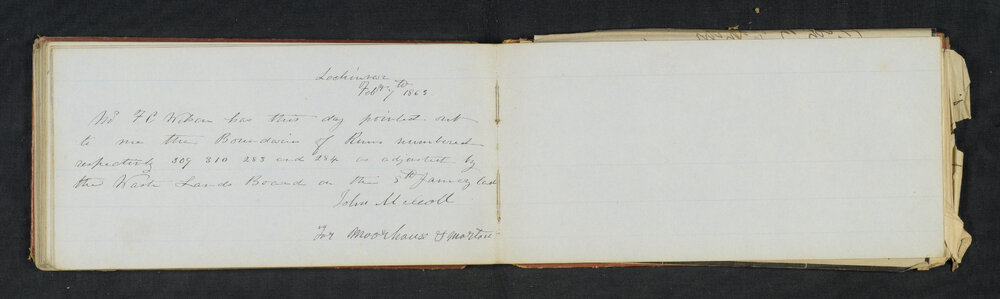 Lochinvar
Feby 7th 1863
Mr F C Wilson has this day pointed out
to me the Boundaries of Runs numbered
respectively 309 310 283 and 284 as adjusted by
the Waste Lands Board on the 5th Jany last
John
For Moorhouse & Morton